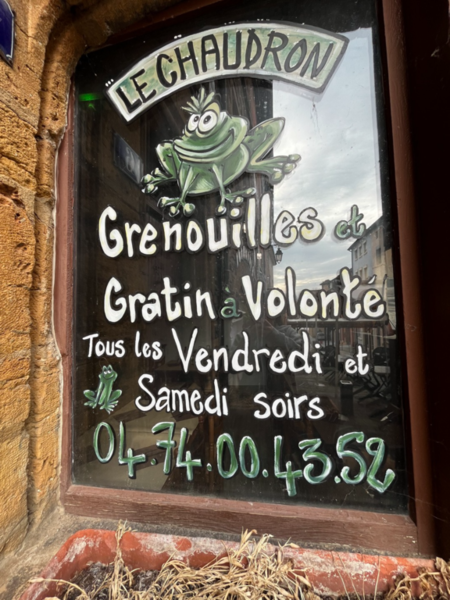 LE CHAUDRON
Grenouilles et
Gratin à Volonté
Tous les Vendredi et
Samedi soirs
04.74.00.43.52